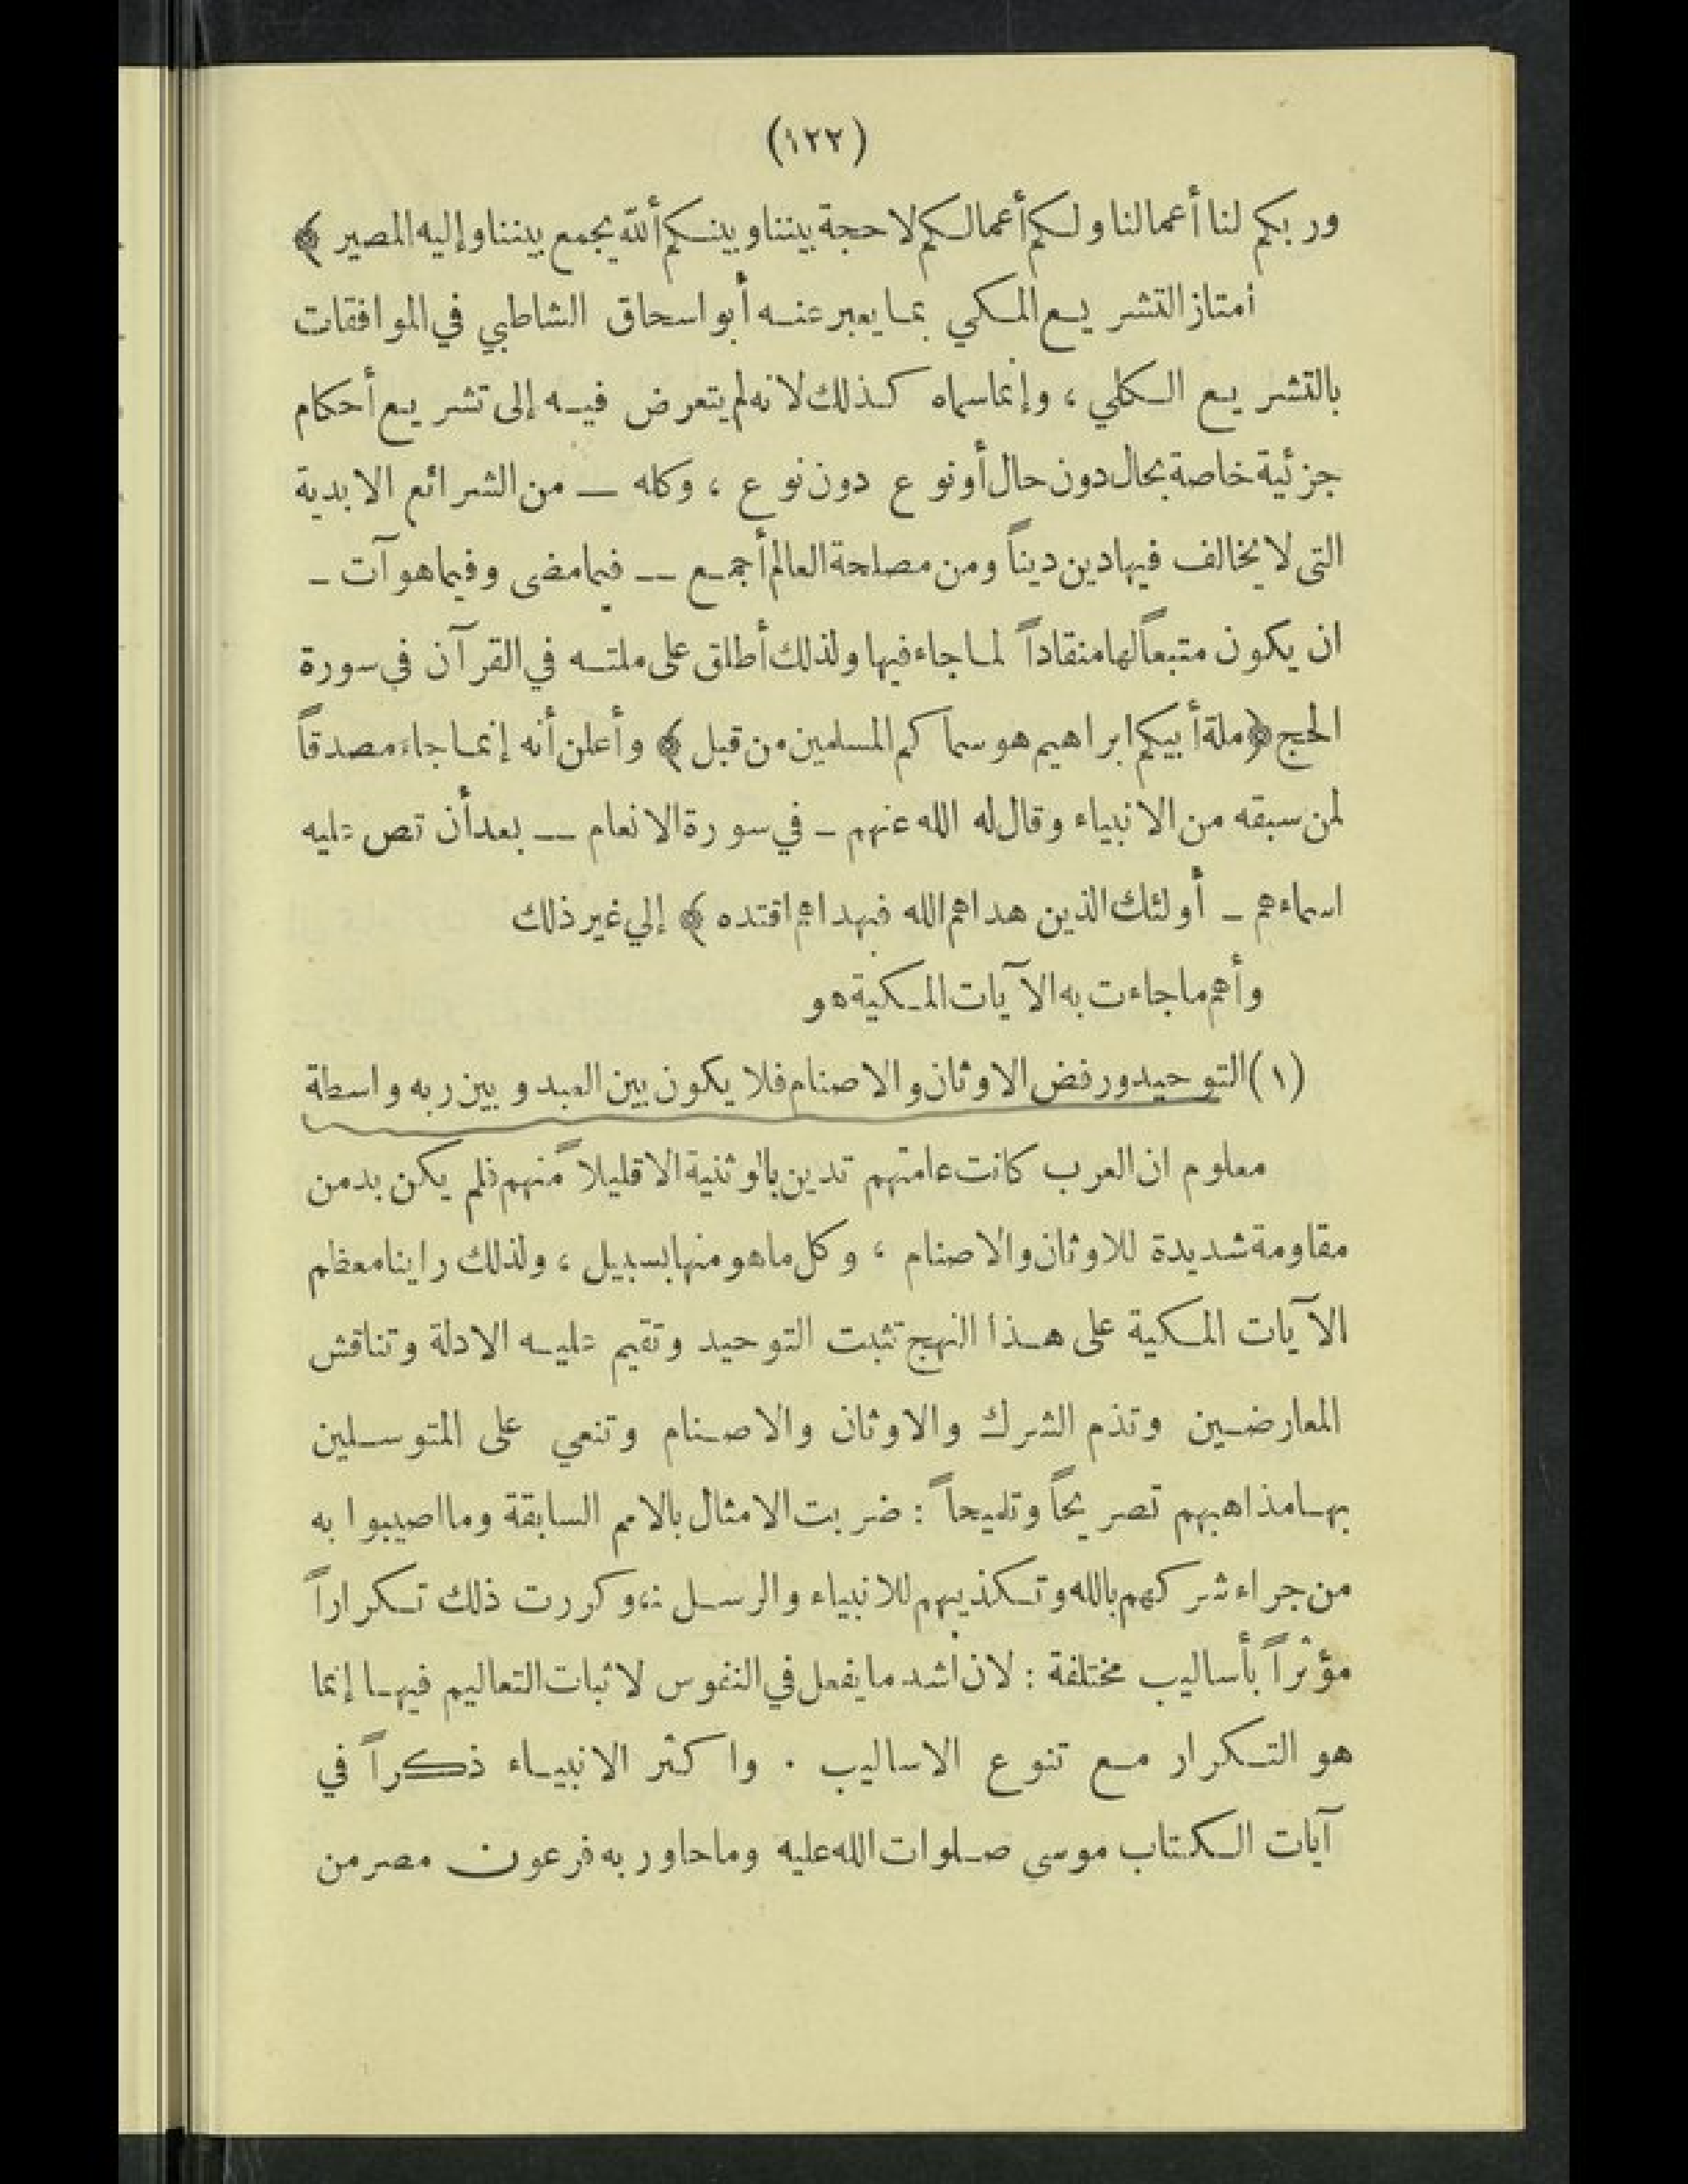 (١٢٢)
وربكم لنا أعمالنا ولكم أعمالكم لا حجة بيننا وبينكم ألله يجمع بيننا وإليه المصير ﴾
أمتاز التشريع المكي بما يعبر عنه أبو اسحاق الشاطبي في الموافقات
بالتشريع الكلي ، وإنما سماه كذلك لانه لم يتعرض فيه إلى تشريع أحكام
جزئية خاصة بحال دون حال أو نوع دون نوع ، وكله — من الشرائع الابدية
التى لا يخالف فيها دين ديناً ومن مصلحة العالم أجمع — فيما مضى وفيما هو آت -
ان يكون متبعاً لها منقاداً لما جاء فيها ولذلك أطلق على ملته في القرآن في سورة
الحج ﴿ ملة أبيكم ابراهيم هو سماكم المسلمين من قبل ﴾ وأعلن أنه إنما جاء مصدقاً
لمن سبقه من الانبياء وقال له الله عنهم - في سورة الانعام — بعد أن قص عليه
اسماءهم - أولئك الذين هداهم الله فبهداهم اقتده ﴾ إلي غير ذلك
وأهم ما جاءت به الآيات المكية هو
(١) التوحيد ورفض الاوثان والاصنام فلا يكون بين العبد و بين ربه واسطة
معلوم ان العرب كانت عامتهم تدين بالوثنية الا قليلاً منهم فلم يكن بد من
مقاومة شديدة للاوثان والاصنام ، وكل ما هو منها بسبيل ، ولذلك راينا معظم
الآيات المكية على هذا النهج تثبت التوحيد وتقيم عليه الادلة وتناقش
المعارضين وتذم الشرك والاوثان والاصنام وتنعي على المتوسلين
بها مذاهبهم تصريحاً وتلميحاً : ضربت الامثال بالامم السابقة وما اصيبوا به
من جراء شركهم بالله وتكذيبهم للانبياء والرسل ، وكررت ذلك تكراراً
مؤثراً بأساليب مختلفة : لان اشد ما يفعل في النفوس لاثبات التعاليم فيها إنما
هو التكرار مع تنوع الاساليب . واكثر الانبياء ذكراً في
آيات الكتاب موسي صلوات الله عليه وما حاور به فرعون مصر من